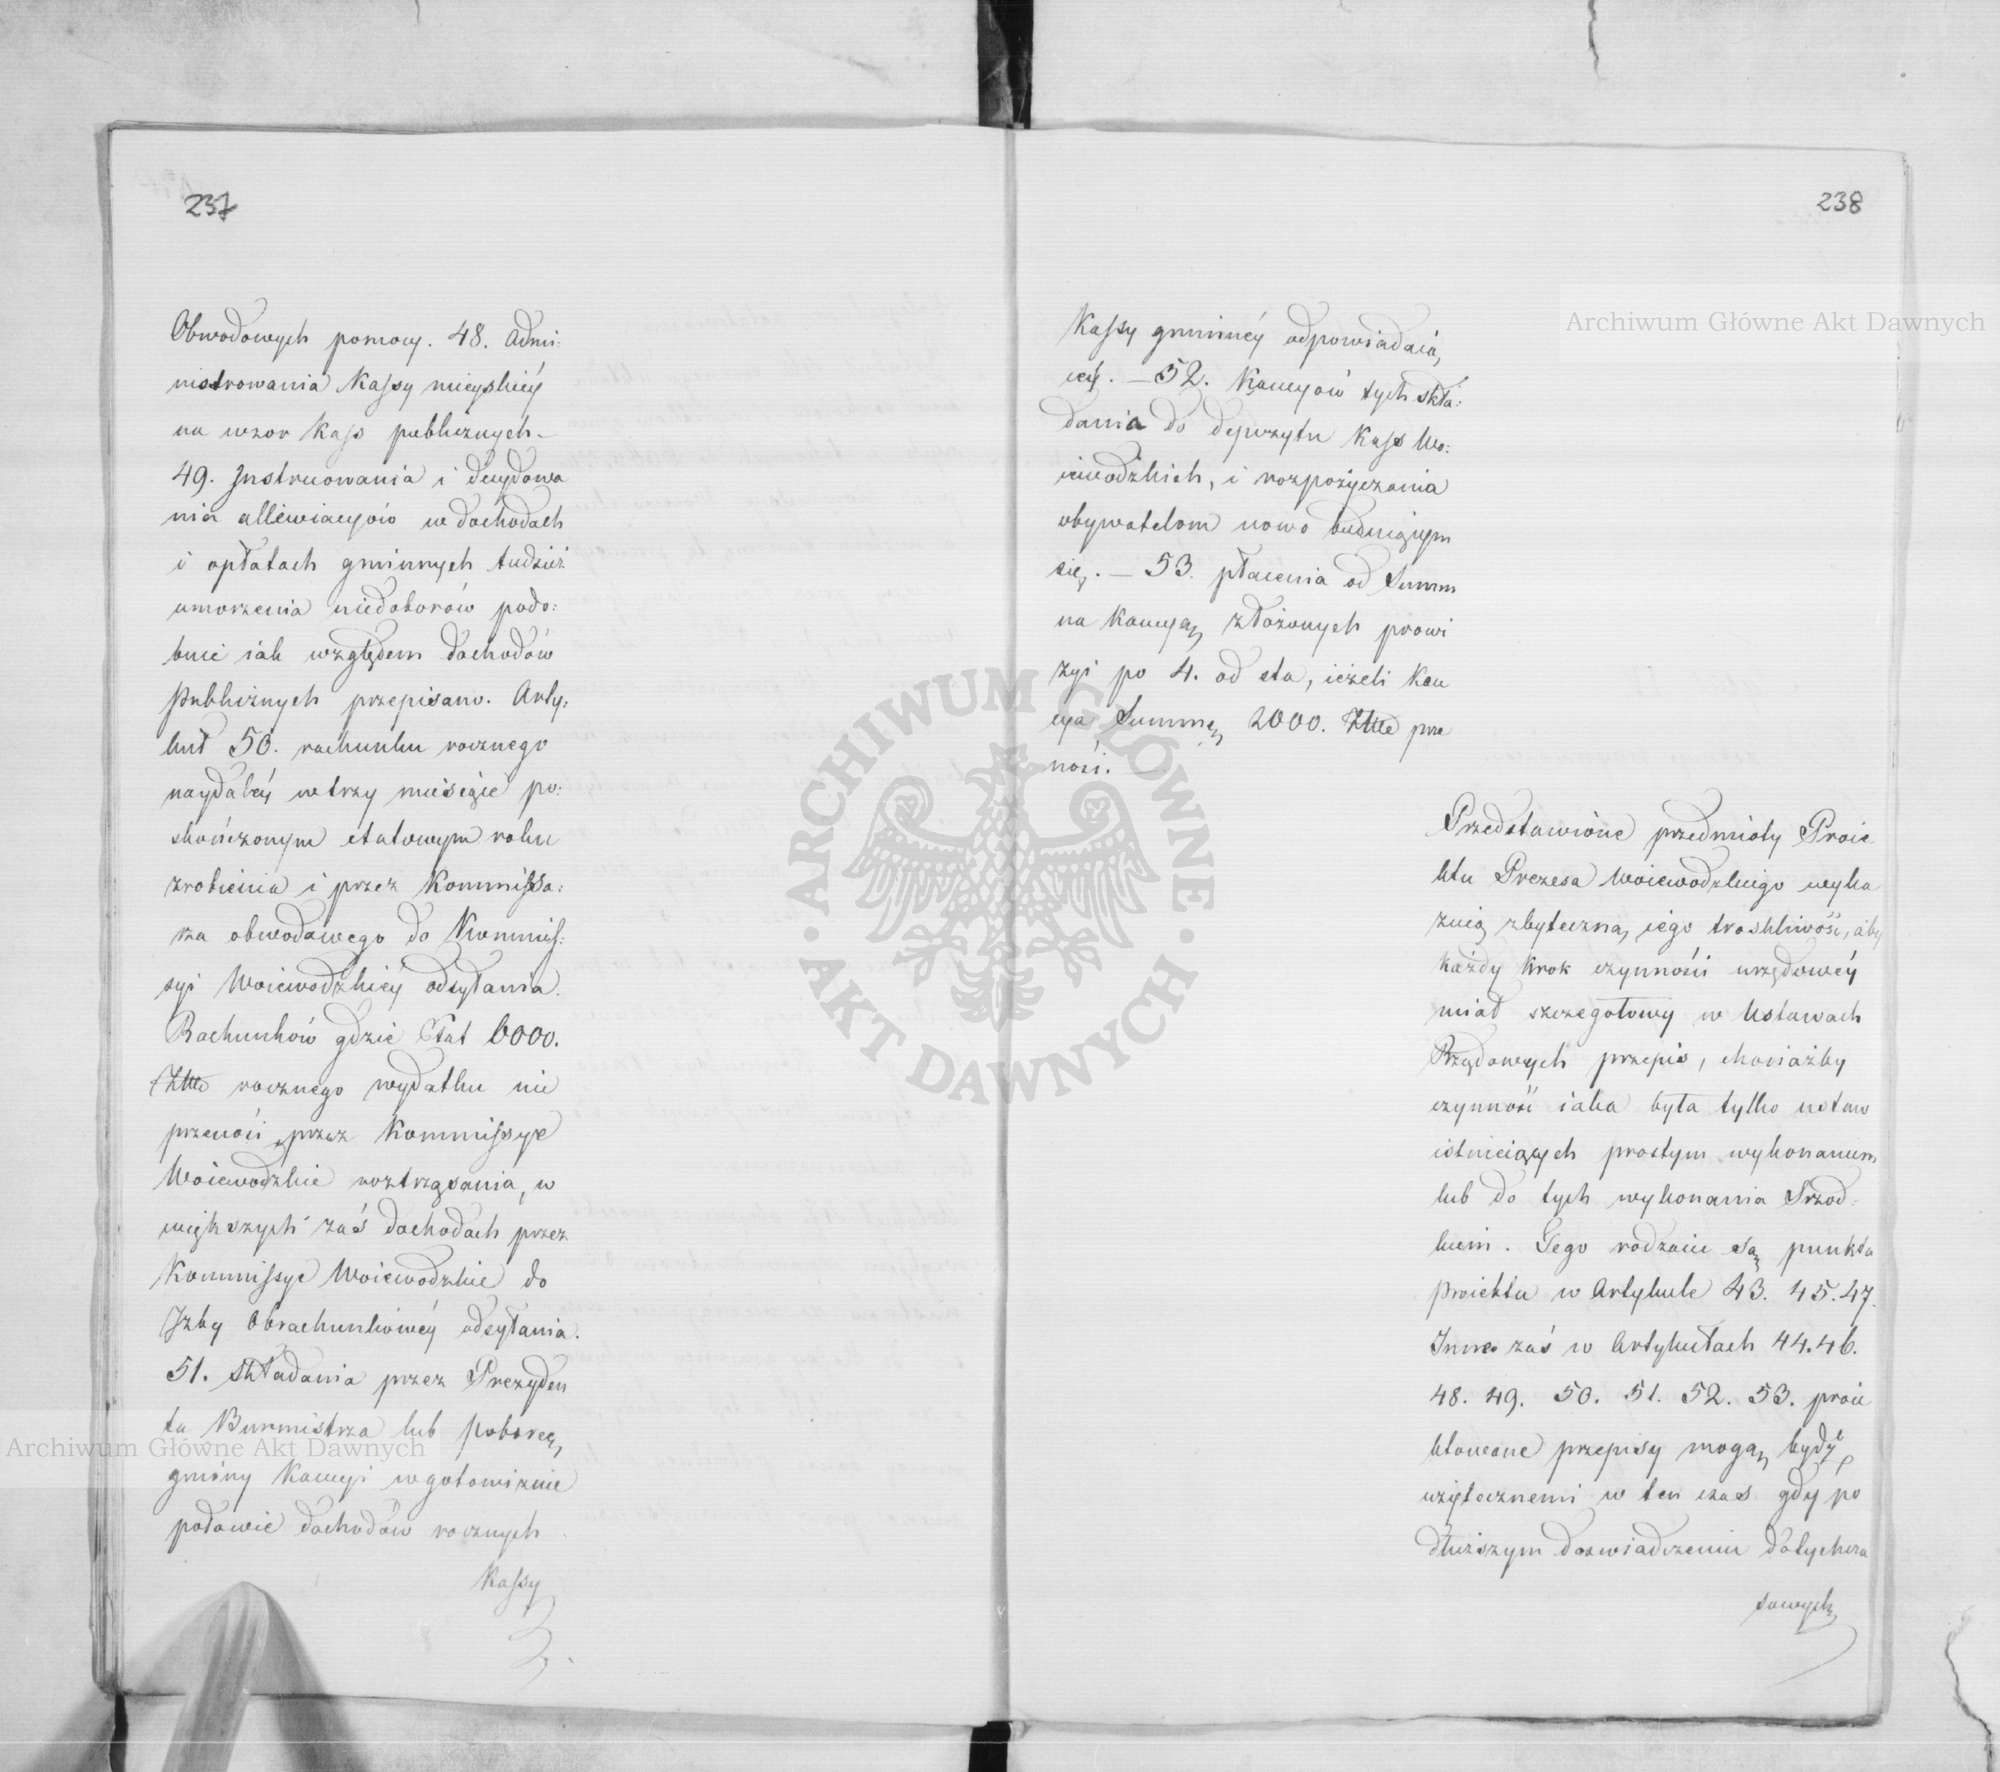 237
Obwodowych pomocy. 48. Admi:
nistrowania Kassy mieyskiéy
na wzor Kass publicznych –
49. Instruowania i decydowa
nia allewiacyów w dochodach
i opłatach gminnych tudzież
umorzenia niedoborów podo:
bnie iak względem dochodów
Publicznych przepisano. Arty:
kuł 50. rachunku rocznego
naydaléy w trzy miesiące po:
skończonym etatowym roku
zrobienia i przez Kommissa:
rza obwodowego do Kommis:
syi Woiewodzkiéy odsyłania.
Rachunków gdzie Etat 6000.
Złłł rocznego wydatku nie
przenosi przez Kommissye
Woiewodzkie roztrząsania, w
większych zaś dochodach przez
Kommissye Woiewodzkie do
Izby Obrachunkowéy odsyłania.
51. składania przez Prezyden
ta Burmistrza lub poborcę,
gminy Kaucyi w gotowiznie
połowie dochodów rocznych
Kassy
238
Kassy gminnéy odpowiadaią,
céy. – 52. Kaucyów tych skła:
dania do depozytu Kass Wo:
iewodzkich, i rozpożyczania
obywatelom nowo buduiącym
się. – 53. płacenia od Summ
na Kaucyą złożonych prowi
zyi po 4. od sta, ieżeli Kau
cya Summę 2000. Złłł prze
nosi. –
Przedstawione przedmioty Proie
ktu Prezesa Woiewodzkiego wyka
zuią zbyteczną iego troskliwość, aby
każdy krok czynności urzędowéy
miał szczegołowy w Ustawach
Rządowych przepis, chociażby
czynność iaka była tylko ustaw
istnieiących prostym wykonaniem
lub do tych wykonania Srzod:
kiem. Tego rodzaiu są punkta
Proiektu w Artykule 43. 45. 47.
Inne zaś w Artykułach 44. 46.
48. 49. 50. 51. 52. 53. proie
ktowane przepisy mogą bydź
użytecznemi w ten czas gdy po
dłuższym doswiadczeniu dotychcza
sowych
Archiwum Główne Akt Dawnych
Archiwum Główne Akt Dawnych
ARCHIWUM GŁÓWNE · AKT DAWNYCH ·